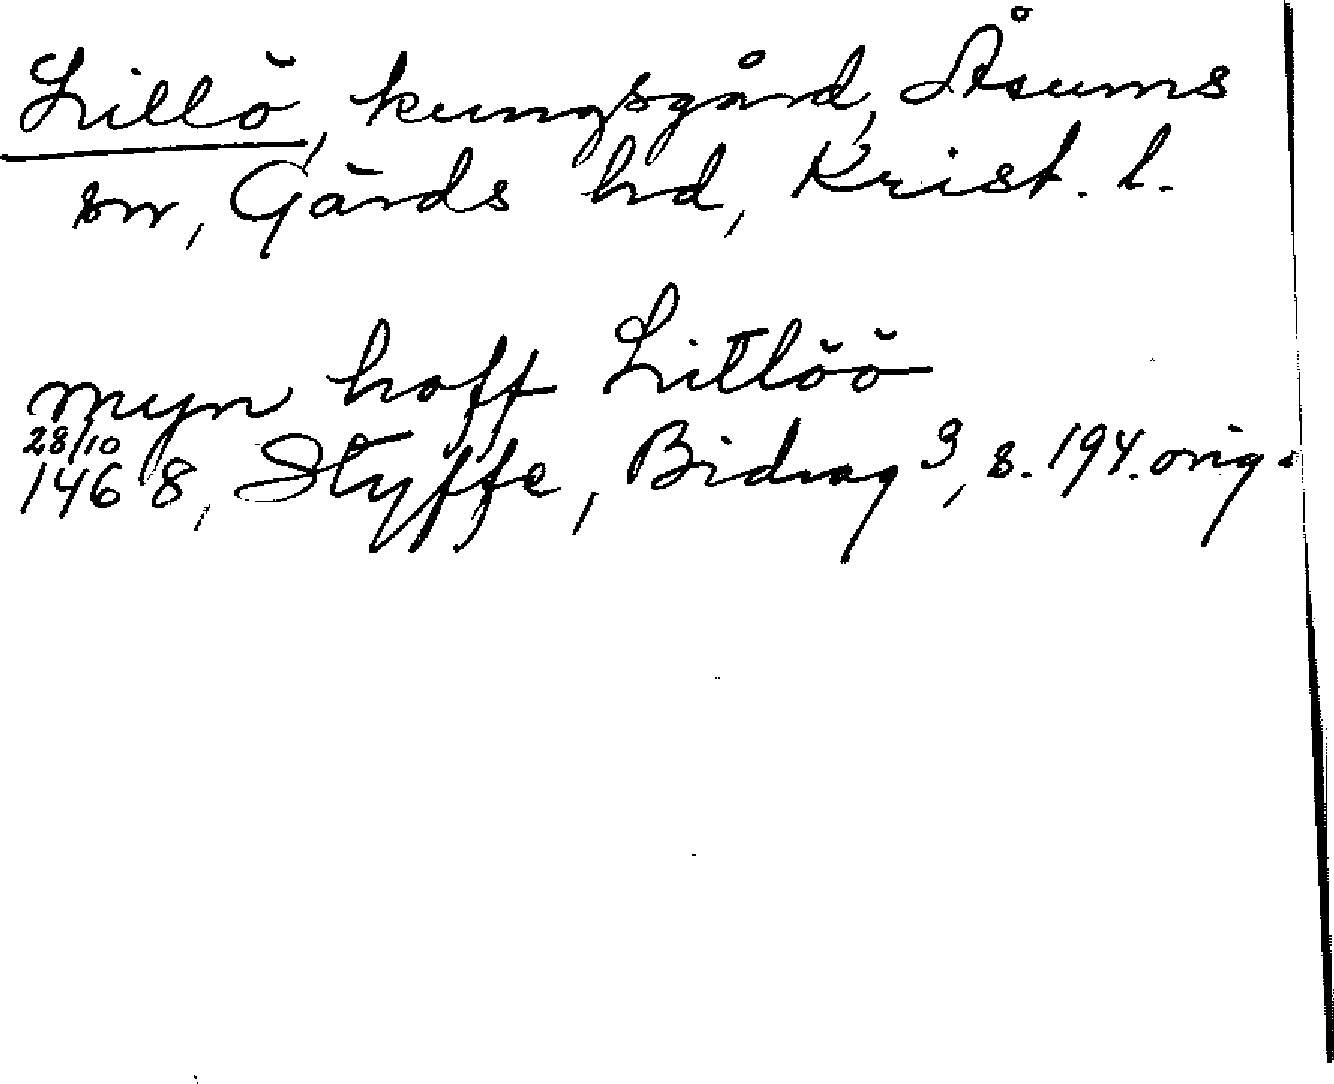 Lillö, kungsgård, Åsums
sn, Gärds hd, Krist. l.
myn hoff Litlöö
28/10
1468, Styffe, Bidrag 3, s. 194. orig.